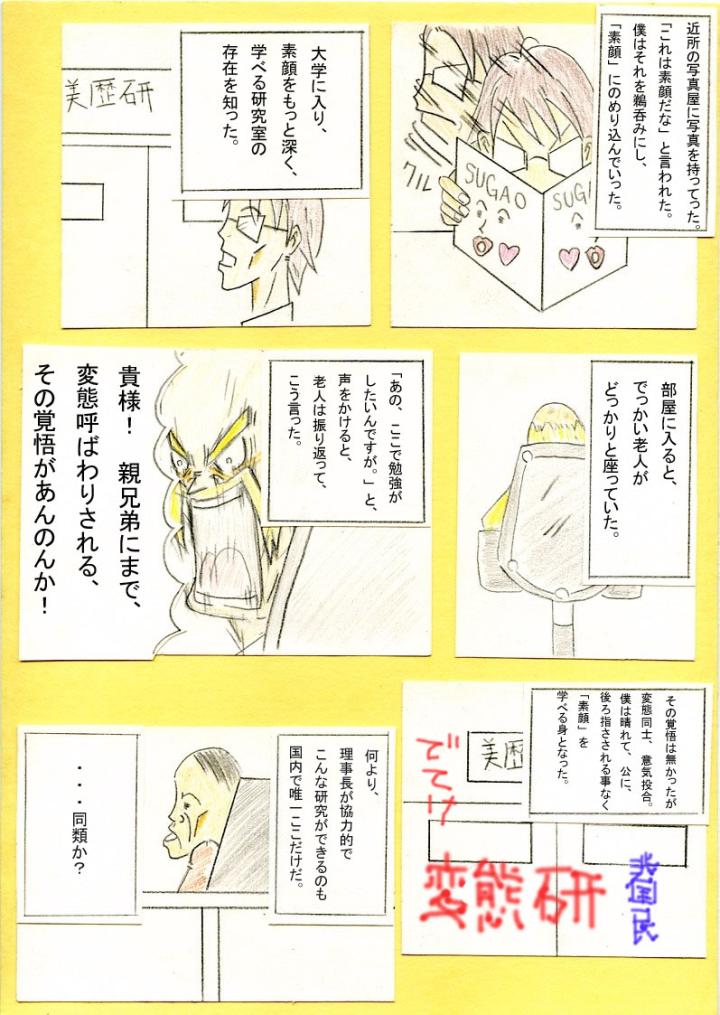 近所の写真屋に写真を持ってった。
「これは素顔だな」と言われた。
僕はそれを鵜呑みにし、
「素顔」にのめり込んでいった。
クル
SUGAO
SUG
大学に入り、
素顔をもっと深く、
学べる研究室の
存在を知った。
美歴研
部屋に入ると、
でっかい老人が
どっかりと座っていた。
「あの、ここで勉強が
したいんですが。」と、
声をかけると、
老人は振り返って、
こう言った。
貴様！　親兄弟にまで、
変態呼ばわりされる、
その覚悟があんのんか！
その覚悟は無かったが
変態同士、意気投合。
僕は晴れて、公に、
後ろ指さされる事なく
「素顔」を
学べる身となった。
美歴
でてけ
変態研
非国民
何より、
理事長が協力的で
こんな研究ができるのも
国内で唯一ここだけだ。
・・・同類か？